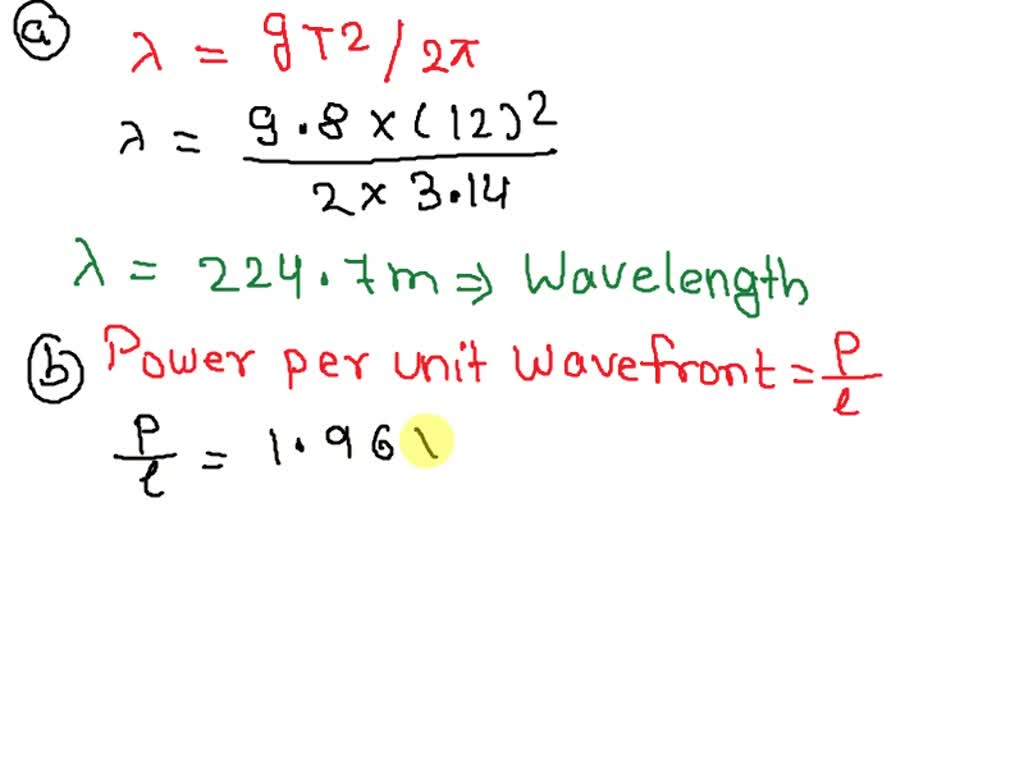 a λ = gT2/2π
λ = 9.8 x (12)2 / 2 x 3.14
λ = 224.7m ⇒ Wavelength
b Power per unit wavefront = P/l
P/l = 1.96